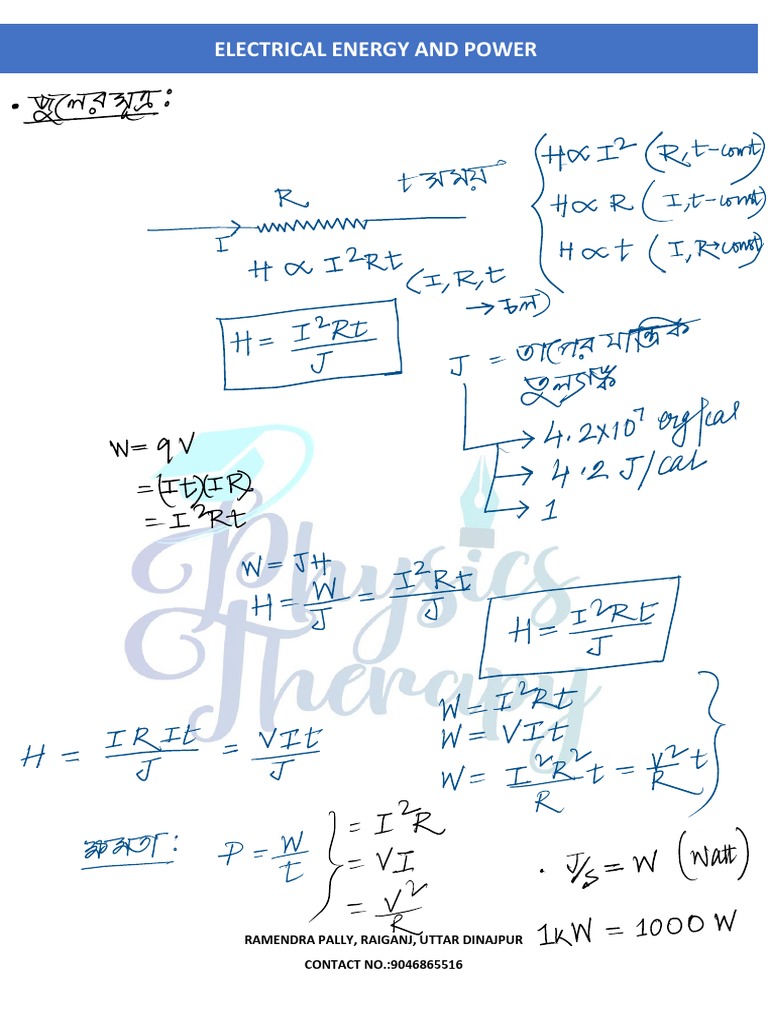 ELECTRICAL ENERGY AND POWER
• জুলের সূত্র :
R
t সময়
I
H ∝ I²Rt
(I, R, t
→ চল)
H ∝ I² (R, t-const)
H ∝ R (I, t-const)
H ∝ t (I, R→const)
H = I²Rt/J
J = তাপের যান্ত্রিক
তুল্যাঙ্ক
→ 4.2×10⁷ erg/cal
→ 4.2 J/cal
→ 1
W = qV
= (It)(IR)
= I²Rt
W = JH
H = W/J = I²Rt/J
H = I²Rt/J
Physics
Therapy
W = I²Rt
W = VIt
W = I²R²/R t = V²/R t
H = IRIt/J = VIt/J
ক্ষমতা : P = W/t
= I²R
= VI
= V²/R
• J/s = W (Watt)
1kW = 1000 W
RAMENDRA PALLY, RAIGANJ, UTTAR DINAJPUR
CONTACT NO.:9046865516